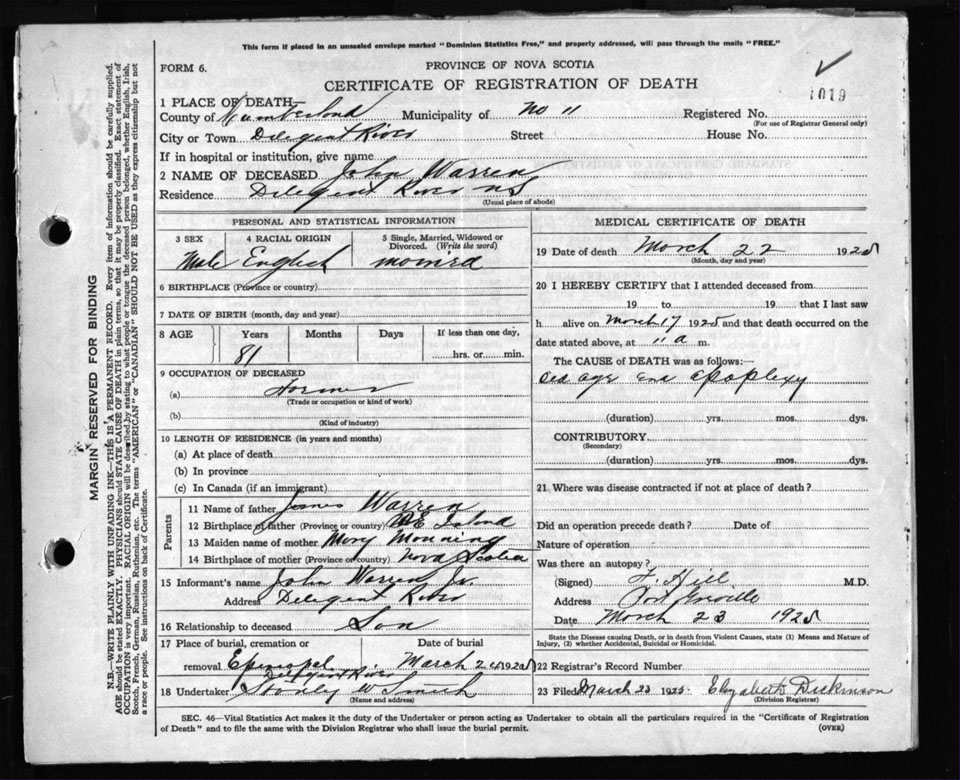 This form if placed in an unsealed envelope marked "Dominion Statistics Free," and properly addressed, will pass through the mails "FREE."
FORM 6.
PROVINCE OF NOVA SCOTIA
CERTIFICATE OF REGISTRATION OF DEATH
1019
1 PLACE OF DEATH
County of Cumberland Municipality of No 11 Registered No.
(For use of Registrar General only)
City or Town Diligent River Street House No.
If in hospital or institution, give name
2 NAME OF DECEASED John Warren
Residence Deligent River NS
(Usual place of abode)
PERSONAL AND STATISTICAL INFORMATION
3 SEX 4 RACIAL ORIGIN 5 Single, Married, Widowed or Divorced. (Write the word)
Male English married
6 BIRTHPLACE (Province or country)
7 DATE OF BIRTH (month, day and year)
8 AGE Years Months Days If less than one day,
81 hrs. or min.
9 OCCUPATION OF DECEASED
(a) Farmer
(Trade or occupation or kind of work)
(b)
(Kind of industry)
10 LENGTH OF RESIDENCE (in years and months)
(a) At place of death
(b) In province
(c) In Canada (if an immigrant)
Parents
11 Name of father James Warren
12 Birthplace of father (Province or country) P E Island
13 Maiden name of mother Mary Manning
14 Birthplace of mother (Province or country) Nova Scotia
15 Informant's name John Warren Jr.
Address Deligent River
16 Relationship to deceased Son
17 Place of burial, cremation or Date of burial
removal Episcopal March 24 1925
Deligent River
18 Undertaker Stanley W Smith
(Name and address)
MEDICAL CERTIFICATE OF DEATH
19 Date of death March 22 1925
(Month, day and year)
20 I HEREBY CERTIFY that I attended deceased from
19 to 19 that I last saw
h alive on March 17 1925 and that death occurred on the
date stated above, at 11 a m.
The CAUSE OF DEATH was as follows:—
Old age and apoplexy
(duration) yrs. mos. dys.
CONTRIBUTORY
(Secondary)
(duration) yrs. mos. dys.
21 Where was disease contracted if not at place of death?
Did an operation precede death? Date of
Nature of operation
Was there an autopsy?
(Signed) Hill M.D.
Address Port Greville
Date March 23 1925
State the Disease causing Death, or in death from Violent Causes, state (1) Means and Nature of
Injury, (2) whether Accidental, Suicidal or Homicidal.
22 Registrar's Record Number
23 Filed March 23 1925 Elizabeth Dickinson
(Division Registrar)
SEC. 46—Vital Statistics Act makes it the duty of the Undertaker or person acting as Undertaker to obtain all the particulars required in the "Certificate of Registration
of Death" and to file the same with the Division Registrar who shall issue the burial permit. (OVER)
MARGIN RESERVED FOR BINDING
N.B.—WRITE PLAINLY WITH UNFADING INK—THIS IS A PERMANENT RECORD. Every item of information should be carefully supplied.
AGE should be stated EXACTLY. PHYSICIANS should STATE CAUSE OF DEATH in plain terms, so that it may be properly classified. Exact statement of
OCCUPATION is very important. RACIAL ORIGIN will be described by stating to what people or tongue the deceased person belonged, whether English, Irish,
Scotch, French, German, Russian, Ruthenian, etc. The terms "AMERICAN" or "CANADIAN" SHOULD NOT BE USED as they express citizenship but not
a race or people. See instructions on back of Certificate.